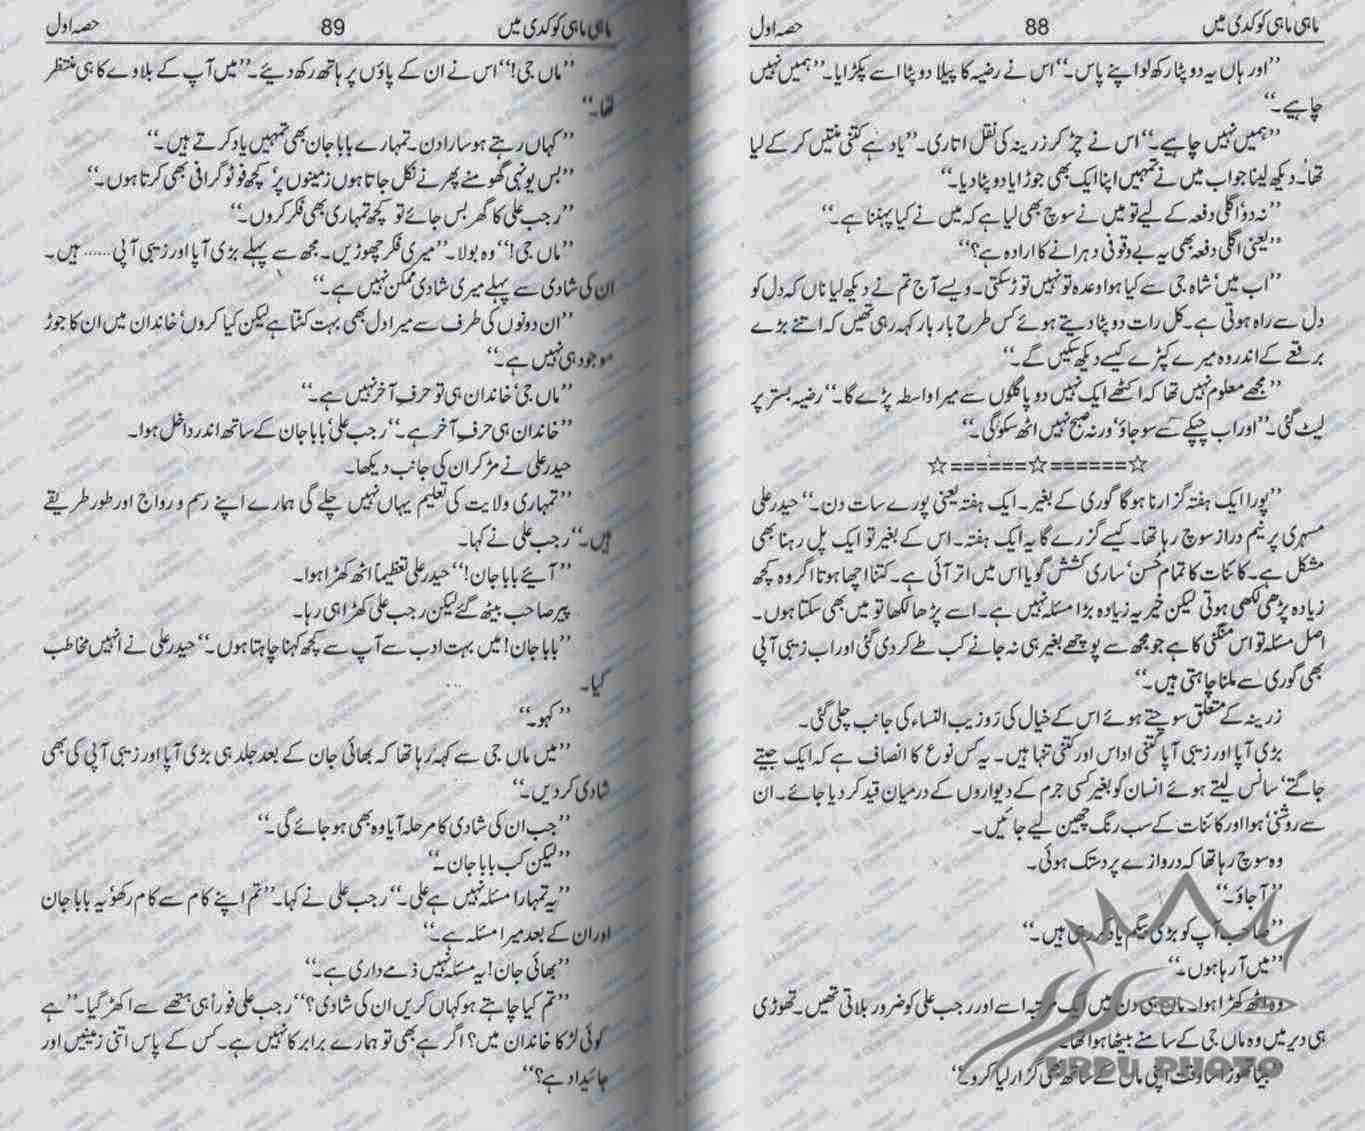 ماہی ماہی کوکدی میں 88 حصہ اول
’’اور ہاں یہ دوپٹا رکھ لو اپنے پاس۔‘‘ اس نے رضیہ کا پیلا دوپٹا اسے پکڑایا۔ ’’ہمیں نہیں
چاہیے۔‘‘
’’ہمیں نہیں چاہیے۔‘‘ اس نے چڑ کر زرینہ کی نقل اتاری۔ ’’یاد ہے کتنی منتیں کر کے لیا
تھا۔ دیکھ لینا جو اب میں نے تمہیں اپنا ایک بھی جوڑا یا دوپٹا دیا۔‘‘
’’نہ دو‘ اگلی دفعہ کے لیے تو میں نے سوچ بھی لیا ہے کہ میں نے کیا پہننا ہے۔‘‘
’’یعنی اگلی دفعہ بھی یہ بے وقوفی دہرانے کا ارادہ ہے؟‘‘
’’اب میں‘ شاہ جی سے کیا ہوا وعدہ تو نہیں توڑ سکتی۔ ویسے آج تم نے دیکھ لیا ناں کہ دل کو
دل سے راہ ہوتی ہے۔ کل رات دوپٹا دیتے ہوئے کس طرح بار بار کہہ رہی تھیں کہ اتنے بڑے
برقعے کے اندر وہ میرے کپڑے کیسے دیکھ سکیں گے۔‘‘
’’مجھے معلوم نہیں تھا کہ اکٹھے ایک نہیں دو پاگلوں سے میرا واسطہ پڑے گا۔‘‘ رضیہ بستر پر
لیٹ گئی۔ ’’اور اب چپکے سے سو جاؤ‘ ورنہ صبح نہیں اٹھ سکو گی۔‘‘
☆======☆======☆
’’پورا ایک ہفتہ گزارنا ہوگا گوری کے بغیر۔ ایک ہفتہ یعنی پورے سات دن۔‘‘ حیدر علی
مسہری پر نیم دراز سوچ رہا تھا۔ کیسے گزرے گا یہ ایک ہفتہ۔ اس کے بغیر تو ایک پل رہنا بھی
مشکل ہے۔ کائنات کا تمام حُسن‘ ساری کشش گویا اس میں اتر آئی ہے۔ کتنا اچھا ہوتا اگر وہ کچھ
زیادہ پڑھی لکھی ہوتی لیکن خیر یہ زیادہ بڑا مسئلہ نہیں ہے۔ اسے پڑھا لکھا تو میں بھی سکتا ہوں۔
اصل مسئلہ تو اس منگنی کا ہے جو مجھ سے پوچھے بغیر ہی نہ جانے کب طے کر دی گئی اور اب زیبی آپی
بھی گوری سے ملنا چاہتی ہیں۔‘‘
زرینہ کے متعلق سوچتے ہوئے اس کے خیال کی رَو زیب النساء کی جانب چلی گئی۔
بڑی آپا اور زیبی آپا کتنی اداس اور کتنی تنہا ہیں۔ یہ کس نوع کا انصاف ہے کہ ایک جیتے
جاگتے‘ سانس لیتے ہوئے انسان کو بغیر کسی جرم کے دیواروں کے درمیان قید کر دیا جائے۔ ان
سے روشنی‘ ہوا اور کائنات کے سب رنگ چھین لیے جائیں۔
وہ سوچ رہا تھا کہ دروازے پر دستک ہوئی۔
’’آجاؤ۔‘‘
’’صاحب آپ کو بڑی بیگم یاد کر رہی ہیں۔‘‘
’’میں آ رہا ہوں۔‘‘
وہ اٹھ کھڑا ہوا۔ ماں جی دن میں ایک مرتبہ اسے اور رجب علی کو ضرور بلاتی تھیں۔ تھوڑی
ہی دیر میں وہ ماں جی کے سامنے بیٹھا ہوا تھا۔
وقت اپنی ماں کے ساتھ بھی گزار لیا کرو۔‘‘
URDU PHOTO
ماہی ماہی کوکدی میں 89 حصہ اول
’’ماں جی!‘‘ اس نے ان کے پاؤں پر ہاتھ رکھ دیئے۔ ’’میں آپ کے بلاوے کا ہی منتظر
تھا۔‘‘
’’کہاں رہتے ہو سارا دن۔ تمہارے بابا جان بھی تمہیں یاد کرتے ہیں۔‘‘
’’بس یونہی گھومنے پھرنے نکل جاتا ہوں زمینوں پر‘ کچھ فوٹو گرافی بھی کرتا ہوں۔‘‘
’’رجب علی کا گھر بس جائے تو کچھ تمہاری بھی فکر کروں۔‘‘
’’ماں جی!‘‘ وہ بولا۔ ’’میری فکر چھوڑیں۔ مجھ سے پہلے بڑی آپا اور زیبی آپی...... ہیں۔
ان کی شادی سے پہلے میری شادی ممکن نہیں ہے۔‘‘
’’ان دونوں کی طرف سے میرا دل بھی بہت کٹتا ہے لیکن کیا کروں‘ خاندان میں ان کا جوڑ
موجود ہی نہیں ہے۔‘‘
’’ماں جی‘ خاندان ہی تو حرفِ آخر نہیں ہے۔‘‘
’’خاندان ہی حرفِ آخر ہے۔‘‘ رجب علی‘ بابا جان کے ساتھ اندر داخل ہوا۔
حیدر علی نے مڑ کر ان کی جانب دیکھا۔
’’تمہاری ولایت کی تعلیم یہاں نہیں چلے گی ہمارے اپنے رسم و رواج اور طور طریقے
ہیں۔‘‘ رجب علی نے کہا۔
’’آیئے بابا جان!‘‘ حیدر علی تعظیماً اٹھ کھڑا ہوا۔
پیر صاحب بیٹھ گئے لیکن رجب علی کھڑا ہی رہا۔
’’بابا جان! میں بہت ادب سے آپ سے کچھ کہنا چاہتا ہوں۔‘‘ حیدر علی نے انہیں مخاطب
کیا۔
’’کہو۔‘‘
’’میں ماں جی سے کہہ رہا تھا کہ بھائی جان کے بعد جلد ہی بڑی آپا اور زیبی آپی کی بھی
شادی کر دیں۔‘‘
’’جب ان کی شادی کا مرحلہ آیا وہ بھی ہو جائے گی۔‘‘
’’لیکن کب بابا جان۔‘‘
’’یہ تمہارا مسئلہ نہیں ہے علی۔‘‘ رجب علی نے کہا۔ ’’تم اپنے کام سے کام رکھو‘ یہ بابا جان
اور ان کے بعد میرا مسئلہ ہے۔‘‘
’’بھائی جان! یہ مسئلہ نہیں ذمے داری ہے۔‘‘
’’تم کیا چاہتے ہو کہاں کریں ان کی شادی؟‘‘ رجب علی فوراً ہی ہتھے سے اکھڑ گیا۔ ’’ہے
کوئی لڑکا خاندان میں؟ اگر ہے بھی تو ہمارے برابر کا نہیں ہے۔ کس کے پاس اتنی زمینیں اور
جائیداد ہے؟‘‘